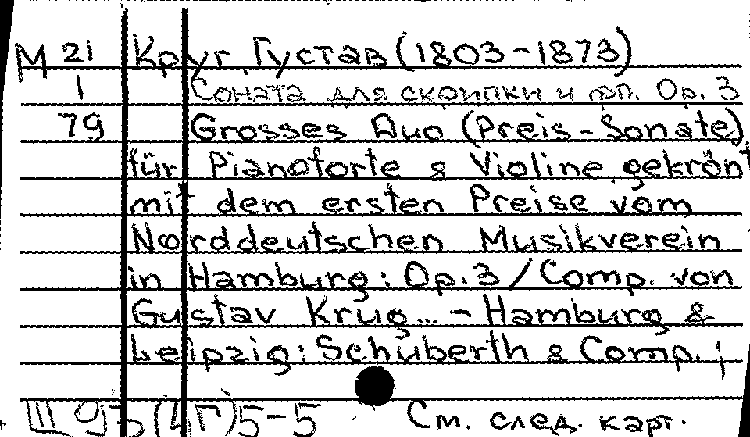 М 21 Круг, Густав (1803-1873)
1 Соната для скрипки и фп. Op. 3
79 Grosses Duo (Preis-Sonate)
für Pianoforte & Violine gekrönt
mit dem ersten Preise vom
Norddeutschen Musikverein
in Hamburg: Op.3 / Comp. von
Gustav Krug... - Hamburg &
Leipzig: Schuberth & Comp. ;
5-5 См. след. карт.